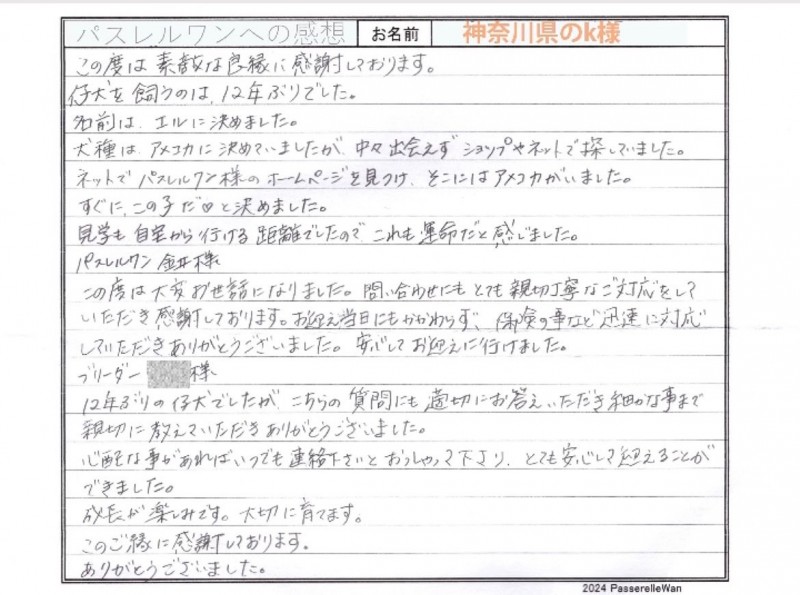 パスレルワンへの感想 お名前 神奈川県のk様
この度は素敵な良縁に感謝しております。
仔犬を飼うのは、12年ぶりでした。
名前は、エルに決めました。
犬種は、アメコカに決めていましたが、中々出会えずショップやネットで探していました。
ネットでパスレルワン様のホームページを見つけ、そこにはアメコカがいました。
すぐに、この子だ♡と決めました。
見学も自宅から行ける距離でしたので、これも運命だと感じました。
パスレルワン 金井様
この度は大変お世話になりました。問い合わせにもとても親切丁寧なご対応をして
いただき感謝しております。お迎え当日にもかかわらず、保険の事など迅速に対応
していただきありがとうございました。安心してお迎えに行けました。
ブリーダー 様
12年ぶりの仔犬でしたが、こちらの質問にも適切にお答えいただき細かな事まで
親切に教えていただきありがとうございました。
心配な事があればいつでも連絡下さいとおっしゃって下さり、とても安心して迎えることが
できました。
成長が楽しみです。大切に育てます。
このご縁に感謝しております。
ありがとうございました。
2024 PasserelleWan